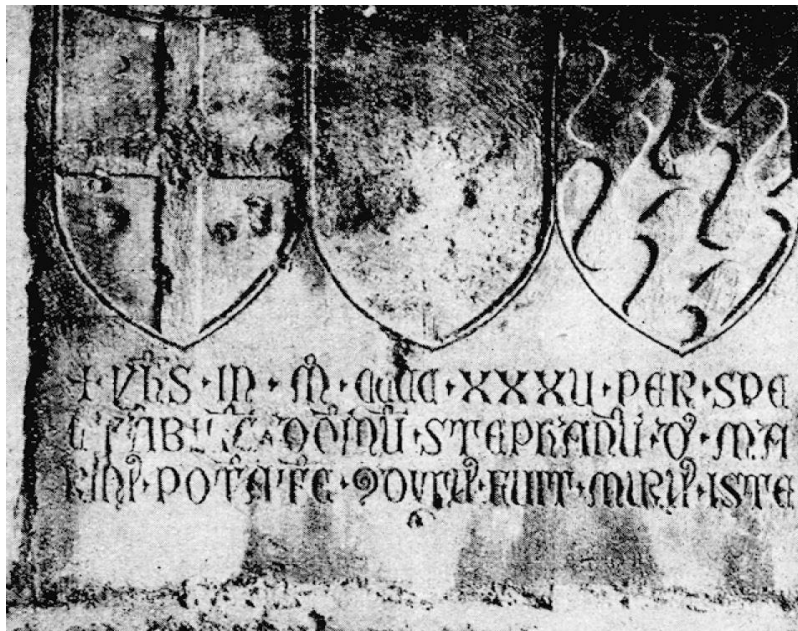 + YHS · IN · M · CCCC · XXXU · PER · SPE
DOMINU · STEPHANU · D · MA
RINI · POTATE · FUIT · MURU · ISTE